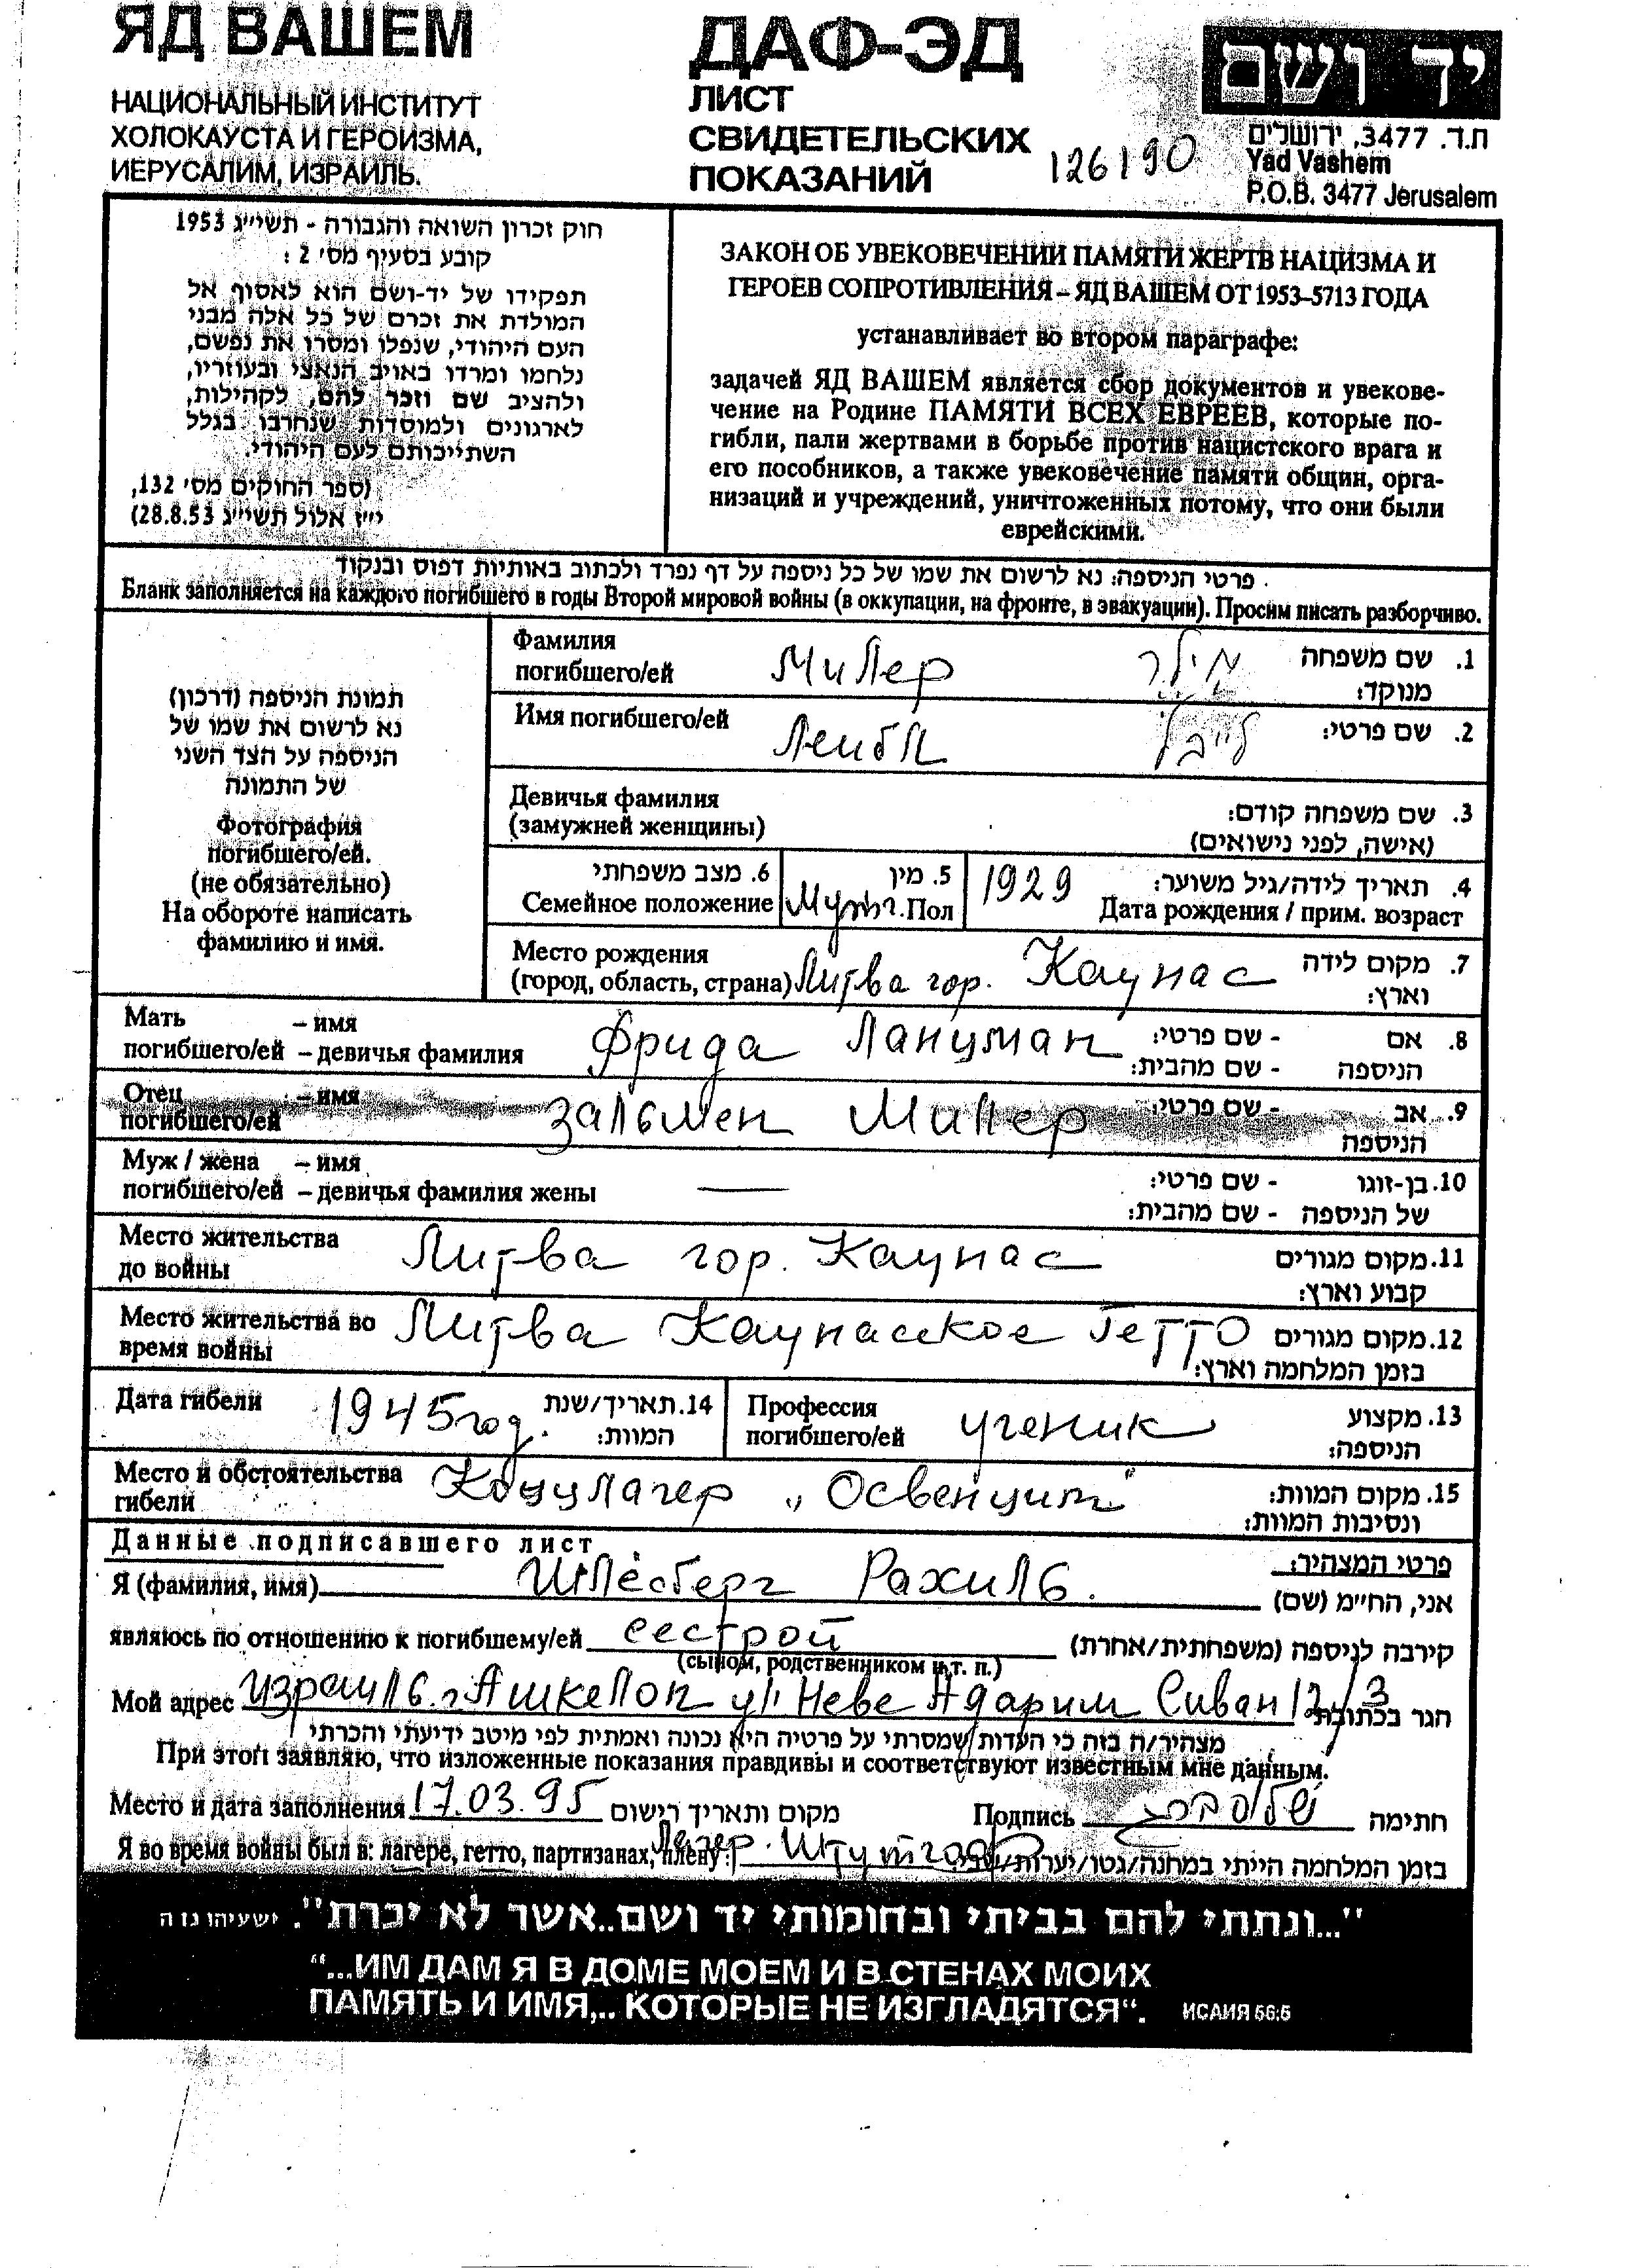 ЯД ВАШЕМ
НАЦИОНАЛЬНЫЙ ИНСТИТУТ
ХОЛОКАУСТА И ГЕРОИЗМА,
ИЕРУСАЛИМ, ИЗРАИЛЬ.
ДАФ-ЭД
ЛИСТ
СВИДЕТЕЛЬСКИХ
ПОКАЗАНИЙ
126190
יד ושם
ת.ד. 3477, ירושלים
Yad Vashem
P.O.B. 3477 Jerusalem
חוק זכרון השואה והגבורה - תשי״ג 1953
קובע בסעיף מס׳ 2 :
תפקידו של יד-ושם הוא לאסוף אל
המולדת את זכרם של כל אלה מבני
העם היהודי, שנפלו ומסרו את נפשם,
נלחמו ומרדו באויב הנאצי ובעוזריו,
ולהציב שם וזכר להם, לקהילות,
לארגונים ולמוסדות שנחרבו בגלל
השתייכותם לעם היהודי.
(ספר החוקים מס׳ 132,
י״ז אלול תשי״ג 28.8.53)
ЗАКОН ОБ УВЕКОВЕЧЕНИИ ПАМЯТИ ЖЕРТВ НАЦИЗМА И
ГЕРОЕВ СОПРОТИВЛЕНИЯ – ЯД ВАШЕМ ОТ 1953-5713 ГОДА
устанавливает во втором параграфе:
задачей ЯД ВАШЕМ является сбор документов и увекове-
чение на Родине ПАМЯТИ ВСЕХ ЕВРЕЕВ, которые по-
гибли, пали жертвами в борьбе против нацистского врага и
его пособников, а также увековечение памяти общин, орга-
низаций и учреждений, уничтоженных потому, что они были
еврейскими.
פרטי הניספה: נא לרשום את שמו של כל ניספה על דף נפרד ולכתוב באותיות דפוס ובנקוד.
Бланк заполняется на каждого погибшего в годы Второй мировой войны (в оккупации, на фронте, в эвакуации). Просим писать разборчиво.
תמונת הניספה (דרכון)
נא לרשום את שמו של
הניספה על הצד השני
של התמונה
Фотография
погибшего/ей.
(не обязательно)
На обороте написать
фамилию и имя.
Фамилия
погибшего/ей Милер מילר 1. שם משפחה
מנוקד:
Имя погибшего/ей Лейбл לייבל 2. שם פרטי:
Девичья фамилия 3. שם משפחה קודם:
(замужней женщины) (אישה, לפני נישואים)
6. מצב משפחתי 5. מין 1929 4. תאריך לידה/גיל משוער:
Семейное положение Мужс. Пол Дата рождения / прим. возраст
Место рождения 7. מקום לידה
(город, область, страна) Литва гор. Каунас וארץ:
Мать – имя Фрида Ланцман - שם פרטי: 8. אם
погибшего/ей – девичья фамилия - שם מהבית: הניספה
Отец – имя Зальмен Милер - שם פרטי: 9. אב
погибшего/ей הניספה
Муж / жена – имя - שם פרטי: 10. בן-זוגו
погибшего/ей – девичья фамилия жены — - שם מהבית: של הניספה
Место жительства Литва гор. Каунас 11. מקום מגורים
до войны קבוע וארץ:
Место жительства во Литва Каунасское Гетто 12. מקום מגורים
время войны בזמן המלחמה וארץ:
Дата гибели 1945 год. 14. תאריך/שנת
המוות:
Профессия ученик 13. מקצוע
погибшего/ей הניספה:
Место и обстоятельства Концлагер „Освенцим" 15. מקום המוות:
гибели ונסיבות המוות:
Данные подписавшего лист פרטי המצהיר:
Я (фамилия, имя) Шлёсберг Рахиль. אני, החי״מ (שם)
являюсь по отношению к погибшему/ей сестрой קירבה לניספה (משפחתית/אחרת)
(сыном, родственником и т. п.)
Мой адрес Израиль г. Ашкелон ул Неве Адарим Сиван 12/3 הגר בכתובת
מצהיר/ה בזה כי העדות שמסרתי על פרטיה היא נכונה ואמתית לפי מיטב ידיעתי והכרתי
При этом заявляю, что изложенные показания правдивы и соответствуют известным мне данным.
Место и дата заполнения 17.03.95 מקום ותאריך רישום Подпись שלסברג חתימה
Я во время войны был в: лагере, гетто, партизанах, плену: Лагер. Штутгоф בזמן המלחמה הייתי במחנה/גטו/יערות/
"...ונתתי להם בביתי ובחומותי יד ושם..אשר לא יכרת". ישעיהו נו ה
“...ИМ ДАМ Я В ДОМЕ МОЕМ И В СТЕНАХ МОИХ
ПАМЯТЬ И ИМЯ,.. КОТОРЫЕ НЕ ИЗГЛАДЯТСЯ“. ИСАИЯ 56:5